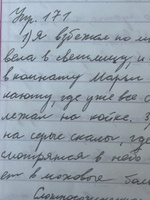 Упр. 171
1) Я взбежал по
вела в светлицу и
в комнату Марьи
каюту, где уже все
лежал на койке.
на серые скалы, где
смотрятся в небо
ет в моховые